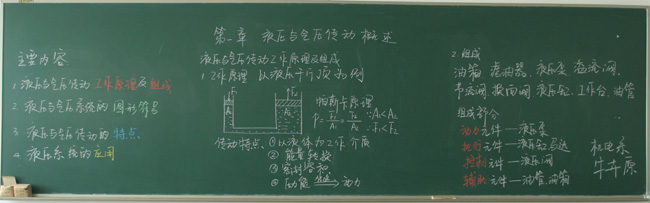 第一章 液压与气压传动概述
主要内容
1. 液压与气压传动工作原理及组成
2. 液压与气压系统的图形符号
3. 液压与气压传动的特点
4. 液压系统的应用
液压与气压传动工作原理及组成
1. 工作原理 以液压千斤顶为例
F₁
F₂
A₁
A₂
帕斯卡原理
P=F₁/A₁=F₂/A₂ ∵A₁<A₂
∴F₁<F₂
传动特点、①以液体为工作介质
② 能量转换
③ 密封容积
④ 压力能 动力
2. 组成
油箱 滤油器、液压泵 溢流阀
节流阀 换向阀 液压缸、工作台、油管
组成部分
动力元件—液压泵
执行元件—液压缸马达
控制元件—液压阀
辅助元件—油管、油箱
机电系